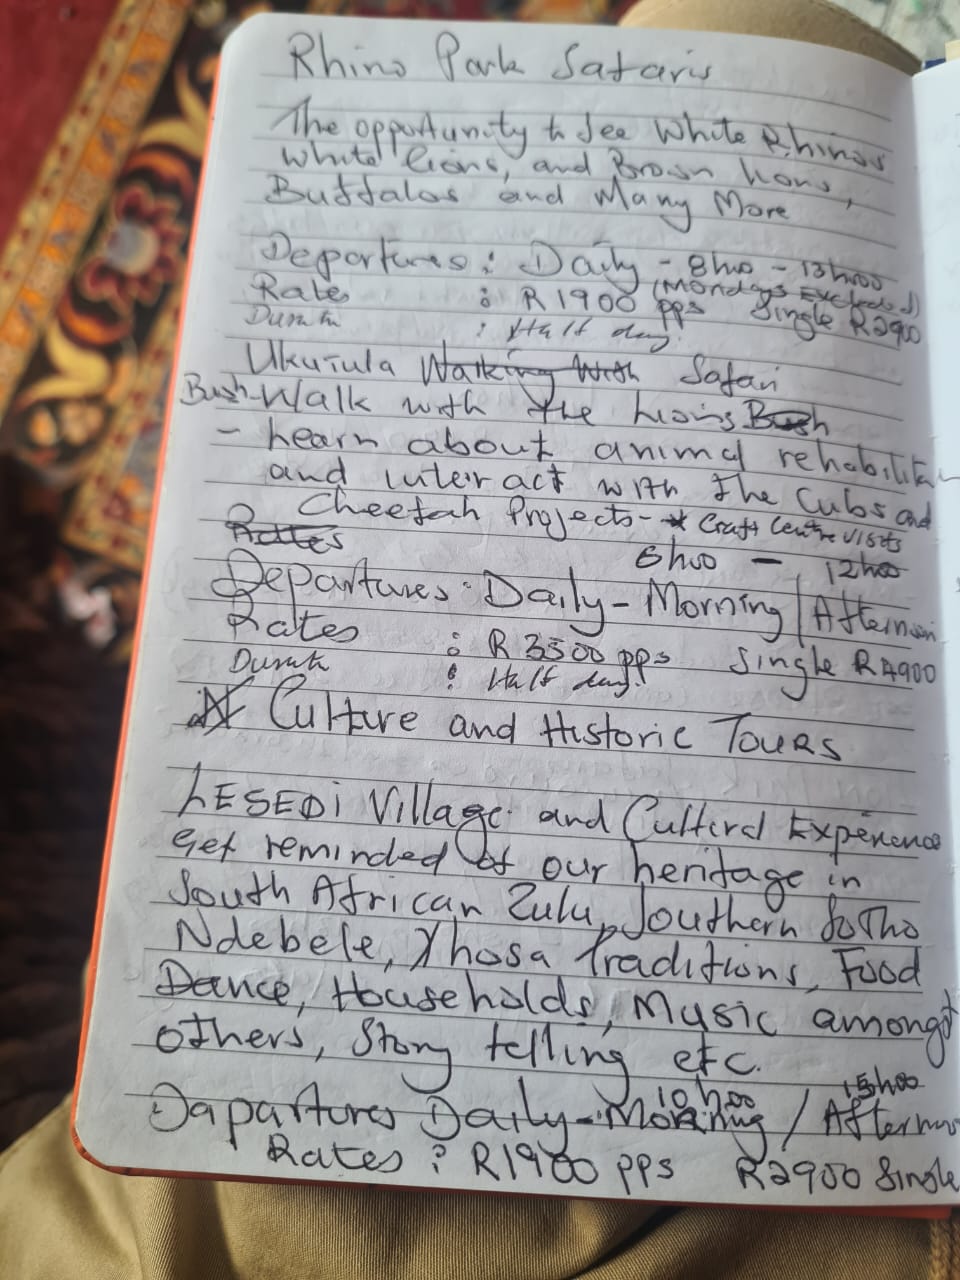 Rhino Park Safaris
The opportunity to See White Rhinos
White lions, and Brown lions,
Buffalos and Many More
Departures : Daily - 8h00 - 13h00
(Mondays Excluded)
Rates : R1900 pps Single R2900
: Half day
Ukutula Walking With Safari
Bush-Walk with the Lions Bush
- Learn about animal rehabilitation
and interact with the Cubs and
Cheetah Projects - * Craft Centre visits
Rates
8h00 - 12h00
Departures : Daily - Morning / Afternoon
Rates : R3500 pps Single R4900
: Half day
Culture and Historic Tours
LESEDi Village and Cultural Experience
Get reminded of our heritage in
South African Zulu, Southern SoTho
Ndebele, Xhosa Traditions, Food
Dance, Households, Music amongst
others, Story telling etc.
10h00 15h00
Dapartures Daily - Morning / Afternoon
Rates : R1900 pps R2900 Single